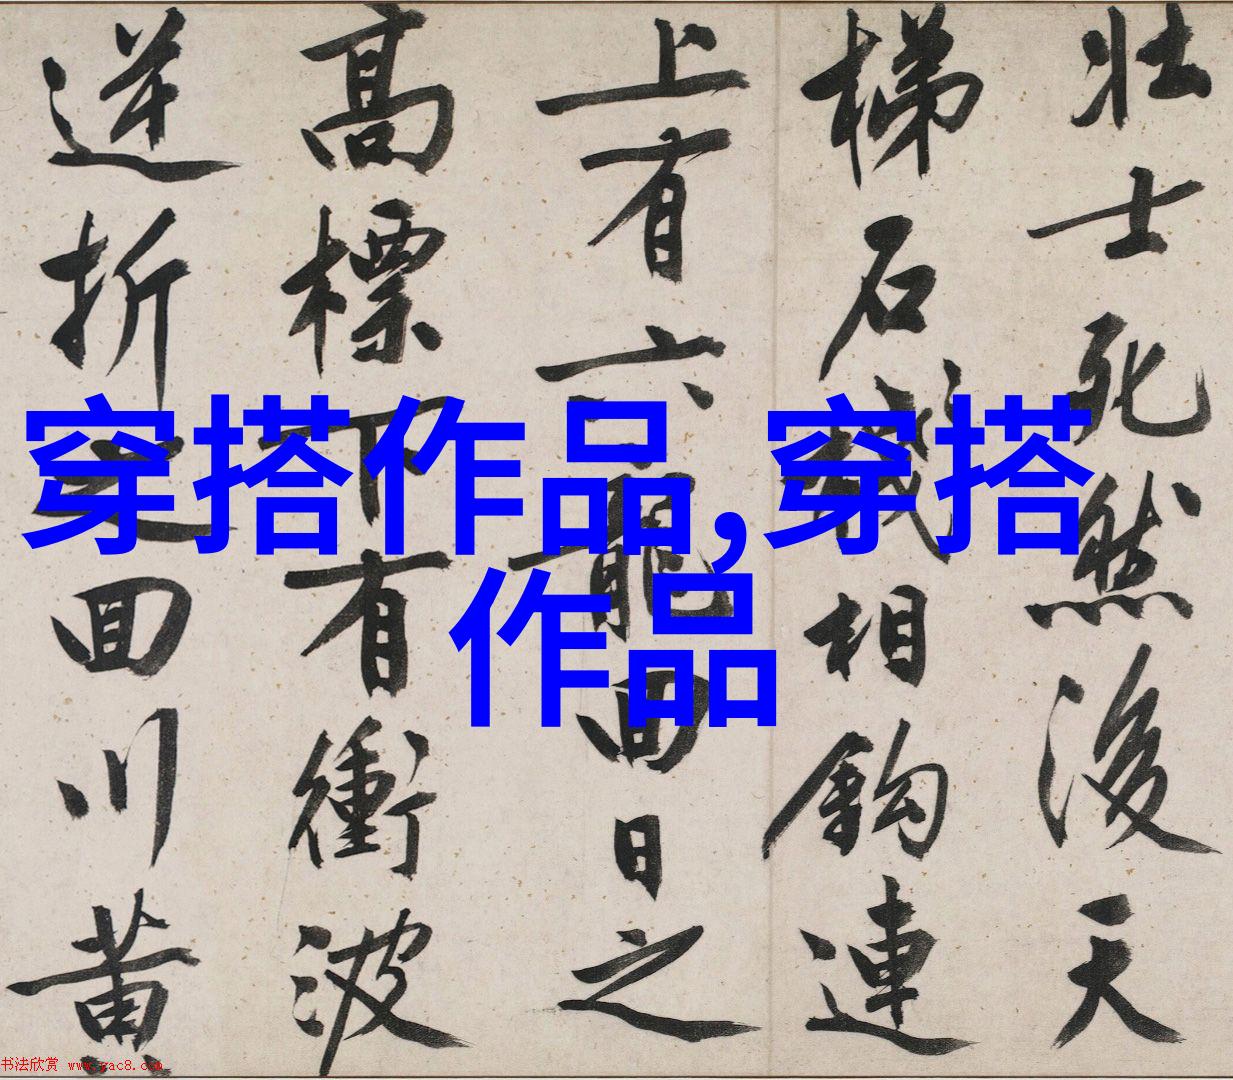 壮士死然後天
梯石棧相鈎連
上有六龍回日之
高標下有衝波
逆折之回川黃
穿搭作品,穿搭
作品
书法欣赏 www.yac8.com